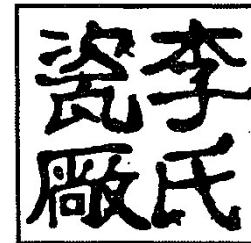 李氏
瓷厰